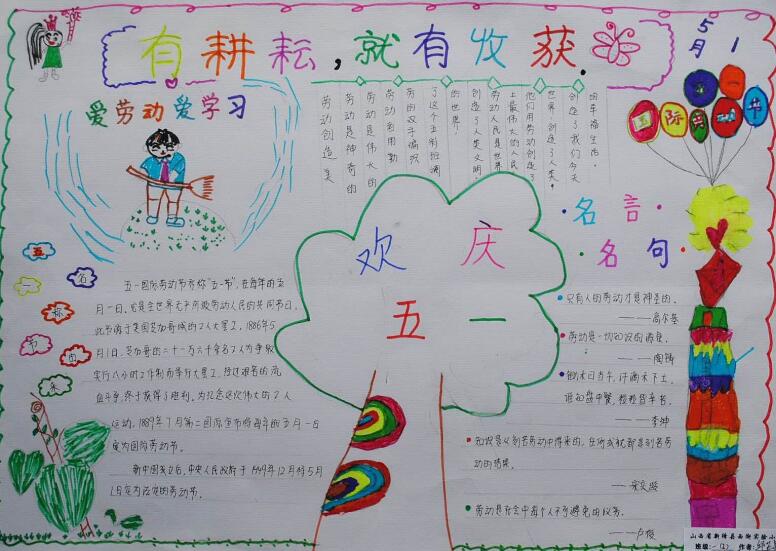 有耕耘，就有收获.
5月1
五一国际劳动节
爱劳动爱学习
劳动创造美
劳动是神奇的
劳动是伟大的
劳动者用勤
劳的双手编织
了这个五彩斑斓
的世界！
创造了人类文明.
劳动人民是世界
上最伟大的人民
他们用劳动创造了
世界！创造了人类！
创造了我们今天
的幸福生活.
欢庆
五一
五一节的来
五一国际劳动节亦称"五一节",在每年的五
月一日.它是全世界无产阶级劳动人民的共同节日.
此节源于美国芝加哥城的工人大罢工.1886年5
月1日,芝加哥的二十一万六千余名工人为争取
实行八小时工作制而举行大罢工.经过艰苦的流
血斗争,终于获得了胜利.为纪念这次伟大的工人
运动,1889年7月第二国际宣布将每年的五月一日
定为国际劳动节.
新中国成立后,中央人民政府于1949年12月将5月
1日定为法定的劳动节.
名言
名句
只有人的劳动才是神圣的.
——高尔基
劳动是一切知识的源泉.
——陶铸
锄禾日当午,汗滴禾下土.
谁知盘中餐,粒粒皆辛苦.
——李绅
知识是从刻苦劳动中得来的,任何成就都是刻苦劳
动的结果.
——宋庆龄
劳动是社会中每个人不可避免的义务.
——卢梭
山西省新绛县西街实验小
班级:一(2) 作者: